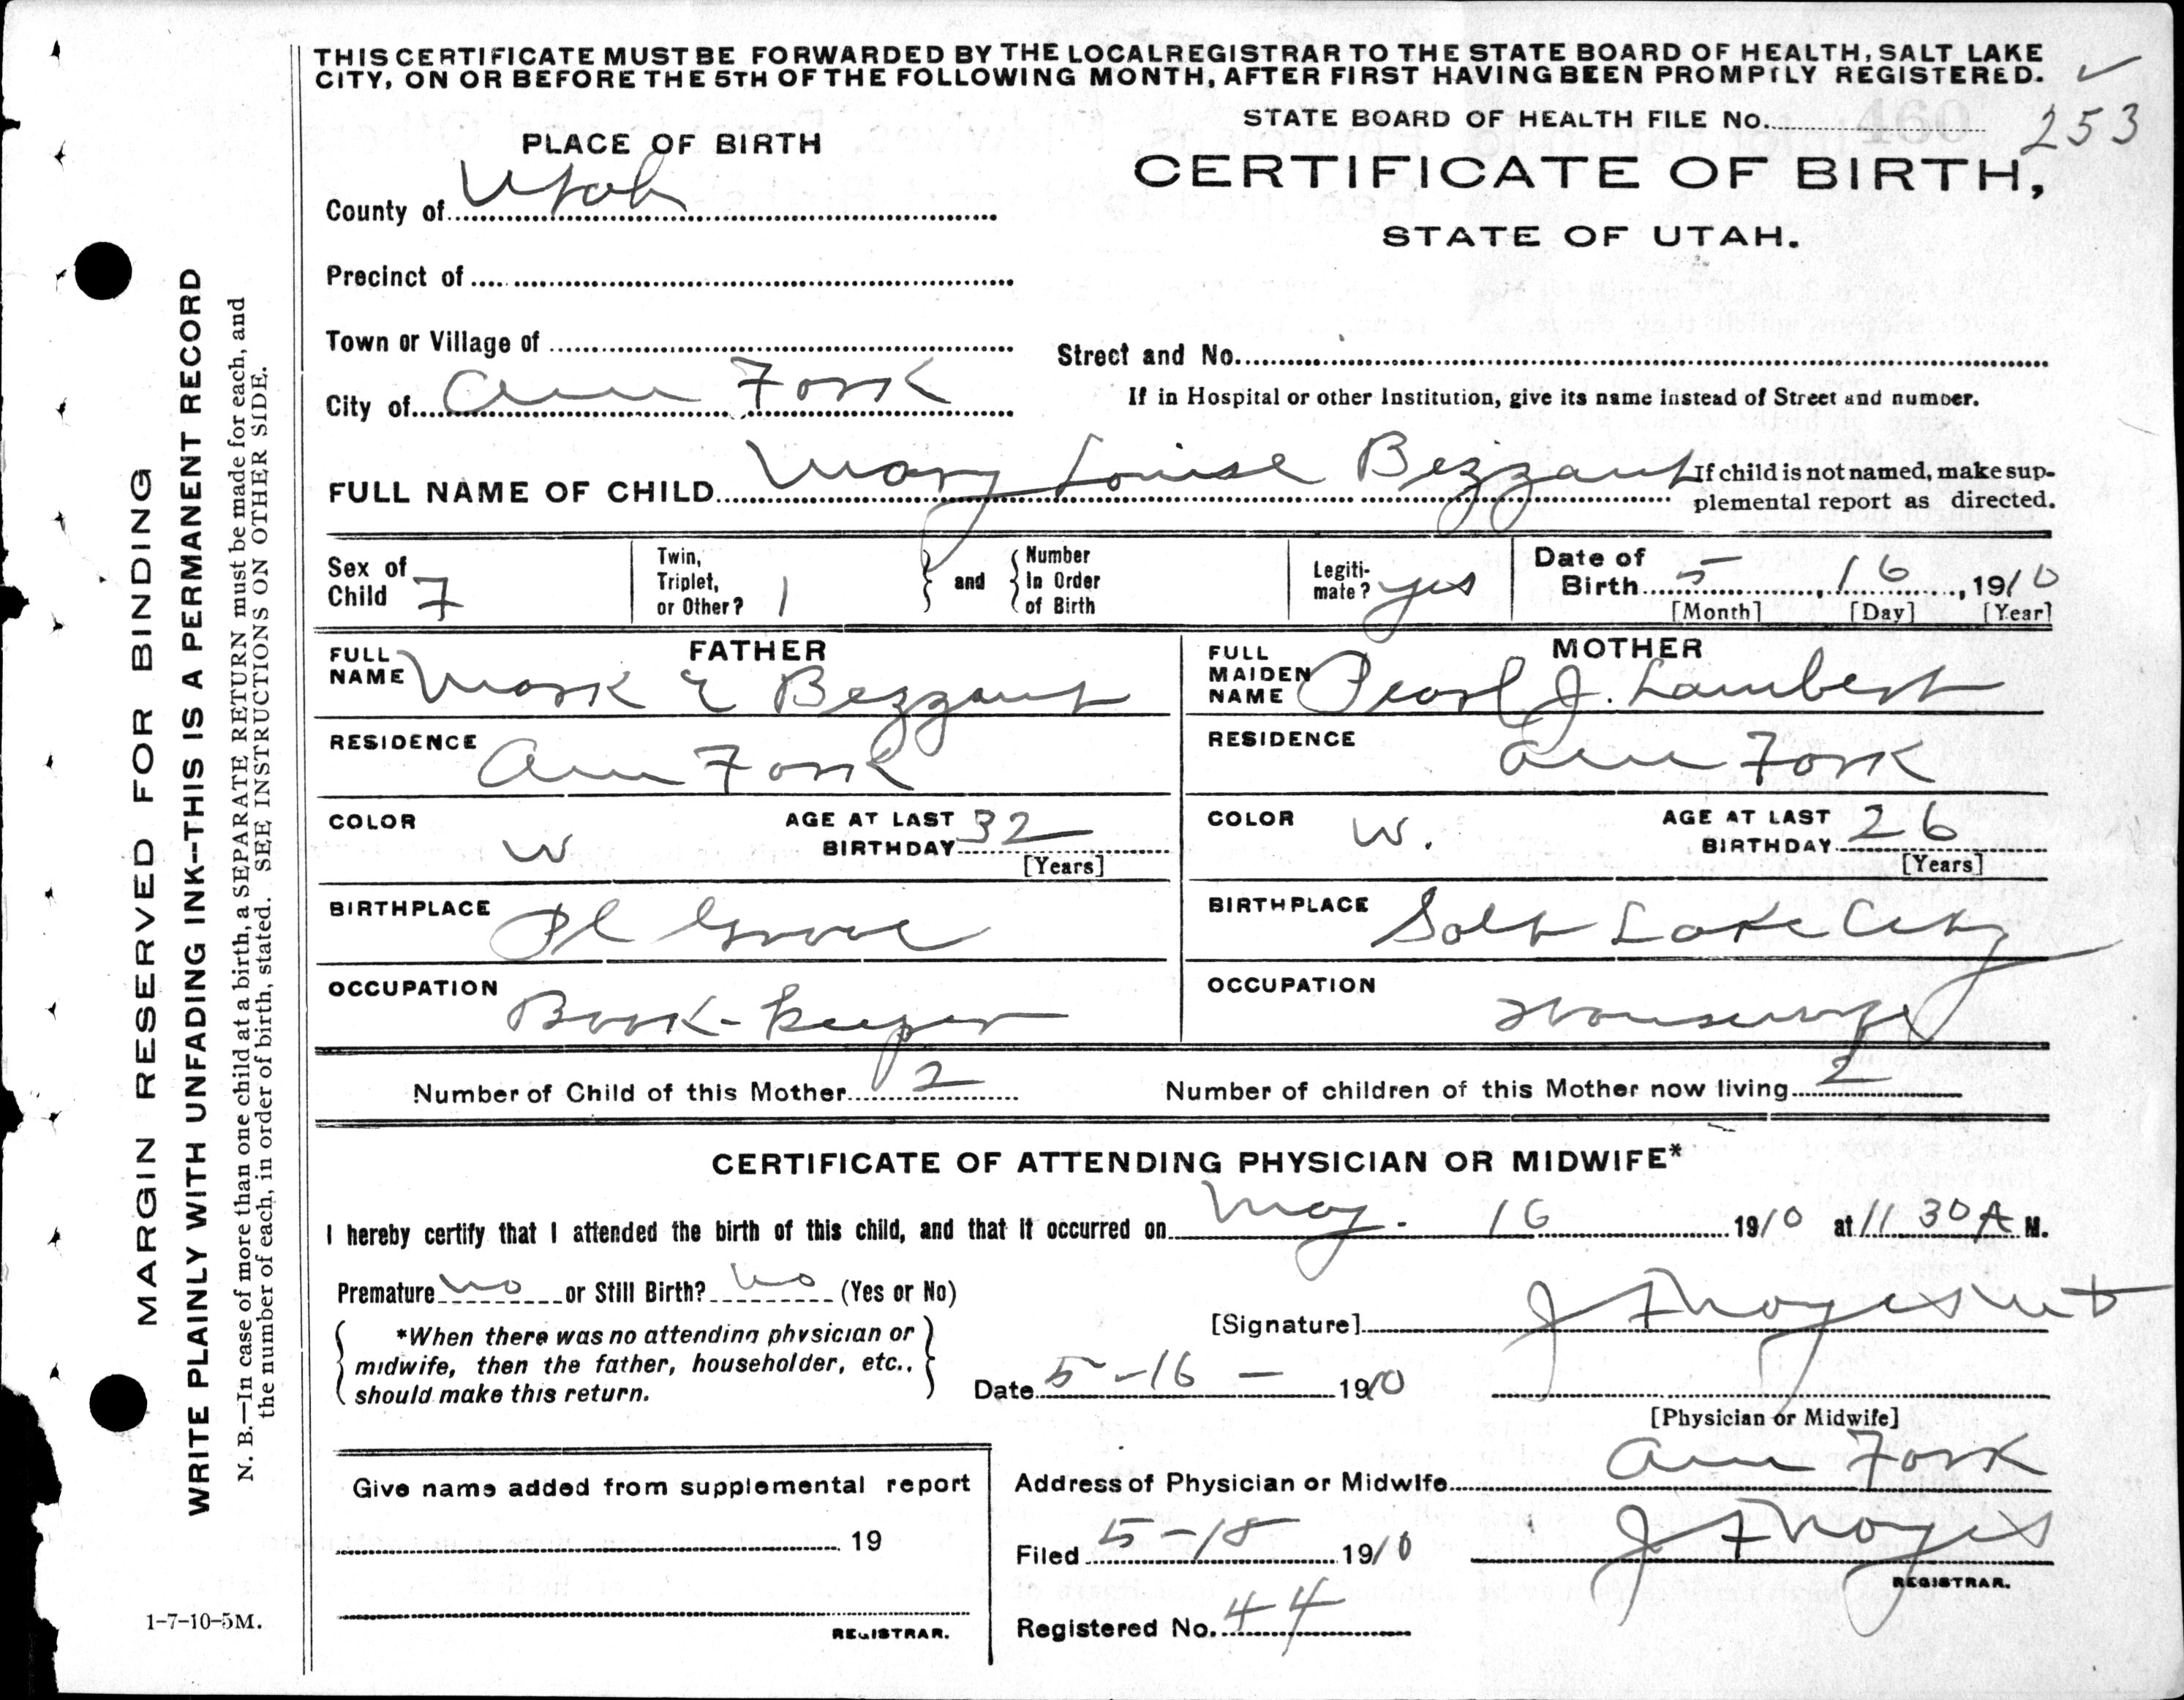 THIS CERTIFICATE MUST BE FORWARDED BY THE LOCAL REGISTRAR TO THE STATE BOARD OF HEALTH, SALT LAKE
CITY, ON OR BEFORE THE 5TH OF THE FOLLOWING MONTH, AFTER FIRST HAVING BEEN PROMPTLY REGISTERED.
STATE BOARD OF HEALTH FILE No. 460 253
PLACE OF BIRTH
CERTIFICATE OF BIRTH,
STATE OF UTAH.
County of Utah
Precinct of
Town or Village of
Street and No.
City of Am Fork
If in Hospital or other Institution, give its name instead of Street and number.
FULL NAME OF CHILD Mary Louise Bezzant
If child is not named, make sup-
plemental report as directed.
Sex of Child F
Twin, Triplet, or Other? 1 and Number In Order of Birth
Legiti-mate? yes
Date of Birth 5, 16, 1910
[Month] [Day] [Year]
FATHER
FULL NAME Mark E Bezzant
RESIDENCE Am Fork
COLOR W
AGE AT LAST BIRTHDAY 32
[Years]
BIRTHPLACE Pl Grove
OCCUPATION Book-keeper
MOTHER
FULL MAIDEN NAME Pearl J. Lambert
RESIDENCE Am Fork
COLOR W.
AGE AT LAST BIRTHDAY 26
[Years]
BIRTHPLACE Salt Lake City
OCCUPATION Housewife
Number of Child of this Mother 2
Number of children of this Mother now living 2
CERTIFICATE OF ATTENDING PHYSICIAN OR MIDWIFE*
I hereby certify that I attended the birth of this child, and that it occurred on May - 16 1910 at 11 30 A M.
Premature no or Still Birth? no (Yes or No)
*When there was no attending physician or
midwife, then the father, householder, etc.,
should make this return.
[Signature] J F Noyes MD
Date 5-16- 1910
[Physician or Midwife]
Give name added from supplemental report
19
REGISTRAR.
Address of Physician or Midwife Am Fork
Filed 5-18 1910 J F Noyes
REGISTRAR.
Registered No. 44
1-7-10-5M.
MARGIN RESERVED FOR BINDING
WRITE PLAINLY WITH UNFADING INK--THIS IS A PERMANENT RECORD
N. B.—In case of more than one child at a birth, a SEPARATE RETURN must be made for each, and
the number of each, in order of birth, stated. SEE INSTRUCTIONS ON OTHER SIDE.